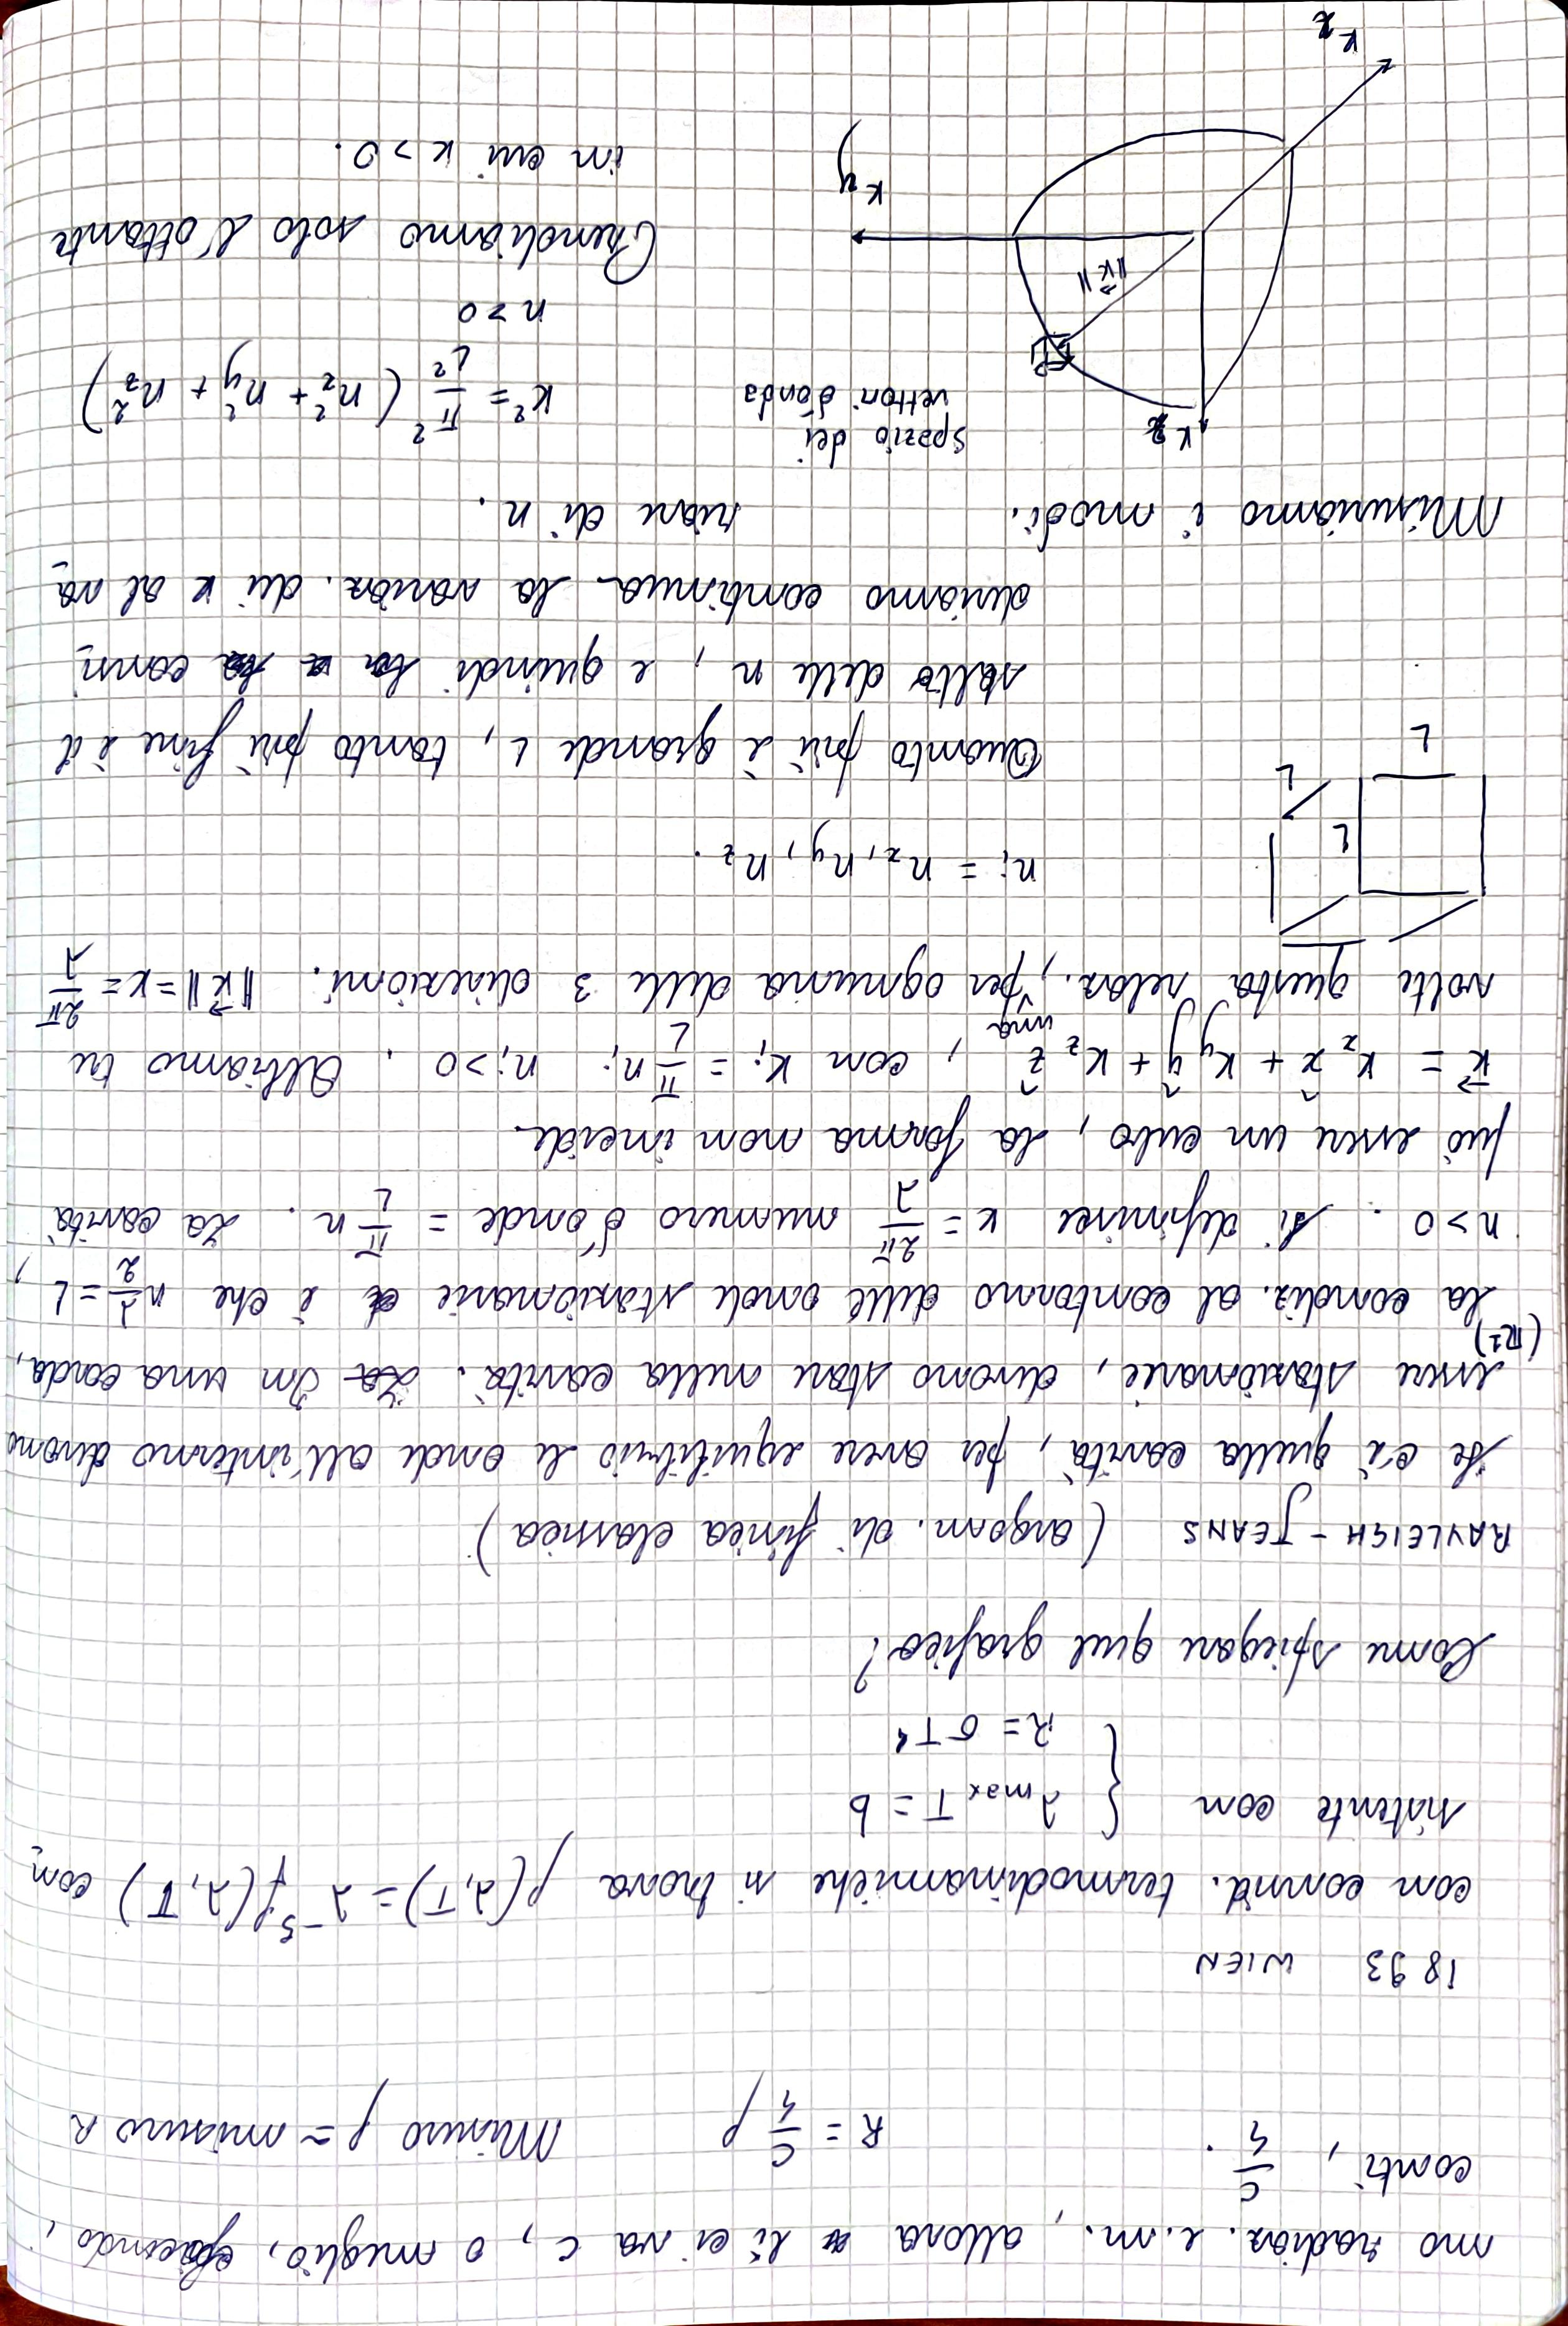 mo radiaz. e.m., allora lì ci va c, o meglio, facendo i
conti, c/4. R = c/4 ρ Misuro ρ = misuro R
1893 WIEN
con consid. termodinamiche si trova ρ(λ,T) = λ⁻⁵ f(λ,T) con
sistente con { λmax T = b
R = σT⁴
Come spiegare quel grafico?
RAYLEIGH - JEANS (argom. di fisica classica)
Se c'è quella cavità, per avere equilibrio le onde all'interno devono
essere stazionarie, devono stare nella cavità. In una corda,
(R¹)
la condiz. al contorno delle onde stazionarie è che n λ/2 = L,
n>0. Si definisce k = 2π/λ numero d'onde = π/L n. La cavità
può essere un cubo, la forma non incide.
k⃗ = kx x̂ + ky ŷ + kz ẑ, con ki = π/L ni ni>0. Abbiamo tre
volte questa relaz., una per ognuna delle 3 direzioni. ‖k⃗‖ = k = 2π/λ
ni = nx, ny, nz.
L
L
L
Quanto più è grande L, tanto più fine è il
salto delle n, e quindi consi
deriamo continua la variaz. di k al va
riare di n.
Misuriamo i modi.
kz
spazio dei
vettori d'onda
k² = π²/L² (nx² + ny² + nz²)
n>0
‖k⃗‖
ky
Prendiamo solo l'ottante
in cui k>0.
kx